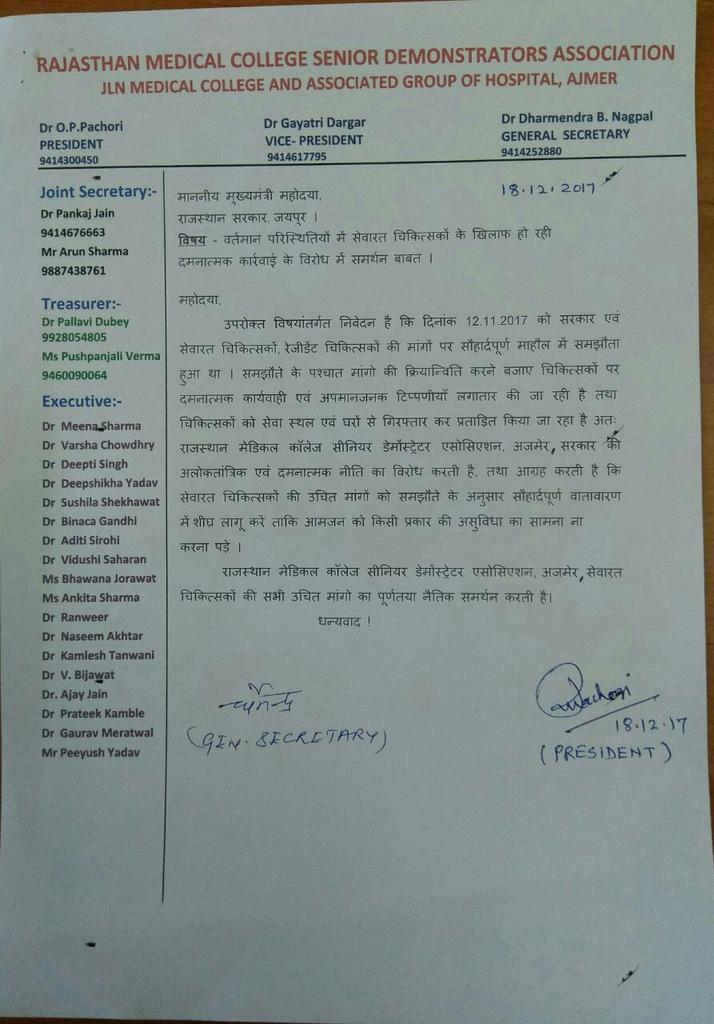 RAJASTHAN MEDICAL COLLEGE SENIOR DEMONSTRATORS ASSOCIATION
JLN MEDICAL COLLEGE AND ASSOCIATED GROUP OF HOSPITAL, AJMER
Dr O.P.Pachori
PRESIDENT
9414300450
Dr Gayatri Dargar
VICE- PRESIDENT
9414617795
Dr Dharmendra B. Nagpal
GENERAL SECRETARY
9414252880
Joint Secretary:-
Dr Pankaj Jain
9414676663
Mr Arun Sharma
9887438761
Treasurer:-
Dr Pallavi Dubey
9928054805
Ms Pushpanjali Verma
9460090064
Executive:-
Dr Meena Sharma
Dr Varsha Chowdhry
Dr Deepti Singh
Dr Deepshikha Yadav
Dr Sushila Shekhawat
Dr Binaca Gandhi
Dr Aditi Sirohi
Dr Vidushi Saharan
Ms Bhawana Jorawat
Ms Ankita Sharma
Dr Ranweer
Dr Naseem Akhtar
Dr Kamlesh Tanwani
Dr V. Bijawat
Dr. Ajay Jain
Dr Prateek Kamble
Dr Gaurav Meratwal
Mr Peeyush Yadav
18.12.2017
माननीय मूख्यमंत्री महोदया,
राजस्थान सरकार, जयपूर ।
विषय - वर्तमान परिस्थितियों में सेवारत चिकित्सकों के खिलाफ हो रही
दमनात्मक कार्रवाई के विरोध में समर्थन बाबत ।
महोदया,
उपरोक्त विषयांतर्गत निवेदन है कि दिनांक 12.11.2017 को सरकार एवं
सेवारत चिकित्सकों, रेजीडेंट चिकित्सकों की मांगों पर सौहार्दपूर्ण माहौल में समझौता
हुआ था । समझौते के पश्चात मांगो की क्रियान्विति करने बजाए चिकित्सकों पर
दमनात्मक कार्यवाही एवं अपमानजनक टिप्पणीयाँ लगातार की जा रही है तथा
चिकित्सकों को सेवा स्थल एवं घरों से गिरफ्तार कर प्रताडित किया जा रहा है अतः
राजस्थान मेडिकल कॉलेज सीनियर डेमोंस्ट्रेटर एसोसिएशन, अजमेर, सरकार की
अलोकतांत्रिक एवं दमनात्मक नीति का विरोध करती है, तथा आग्रह करती है कि
सेवारत चिकित्सकों की उचित मांगों को समझौते के अनुसार सौहार्दपूर्ण वातावारण
में शीघ्र लागू करें ताकि आमजन को किसी प्रकार की असुविधा का सामना ना
करना पड़े ।
राजस्थान मेडिकल कॉलेज सीनियर डेमोंस्ट्रेटर एसोसिएशन, अजमेर, सेवारत
चिकित्सकों की सभी उचित मांगो का पूर्णतया नैतिक समर्थन करती है।
धन्यवाद !
(GEN. SECRETARY)
18.12.17
(PRESIDENT)